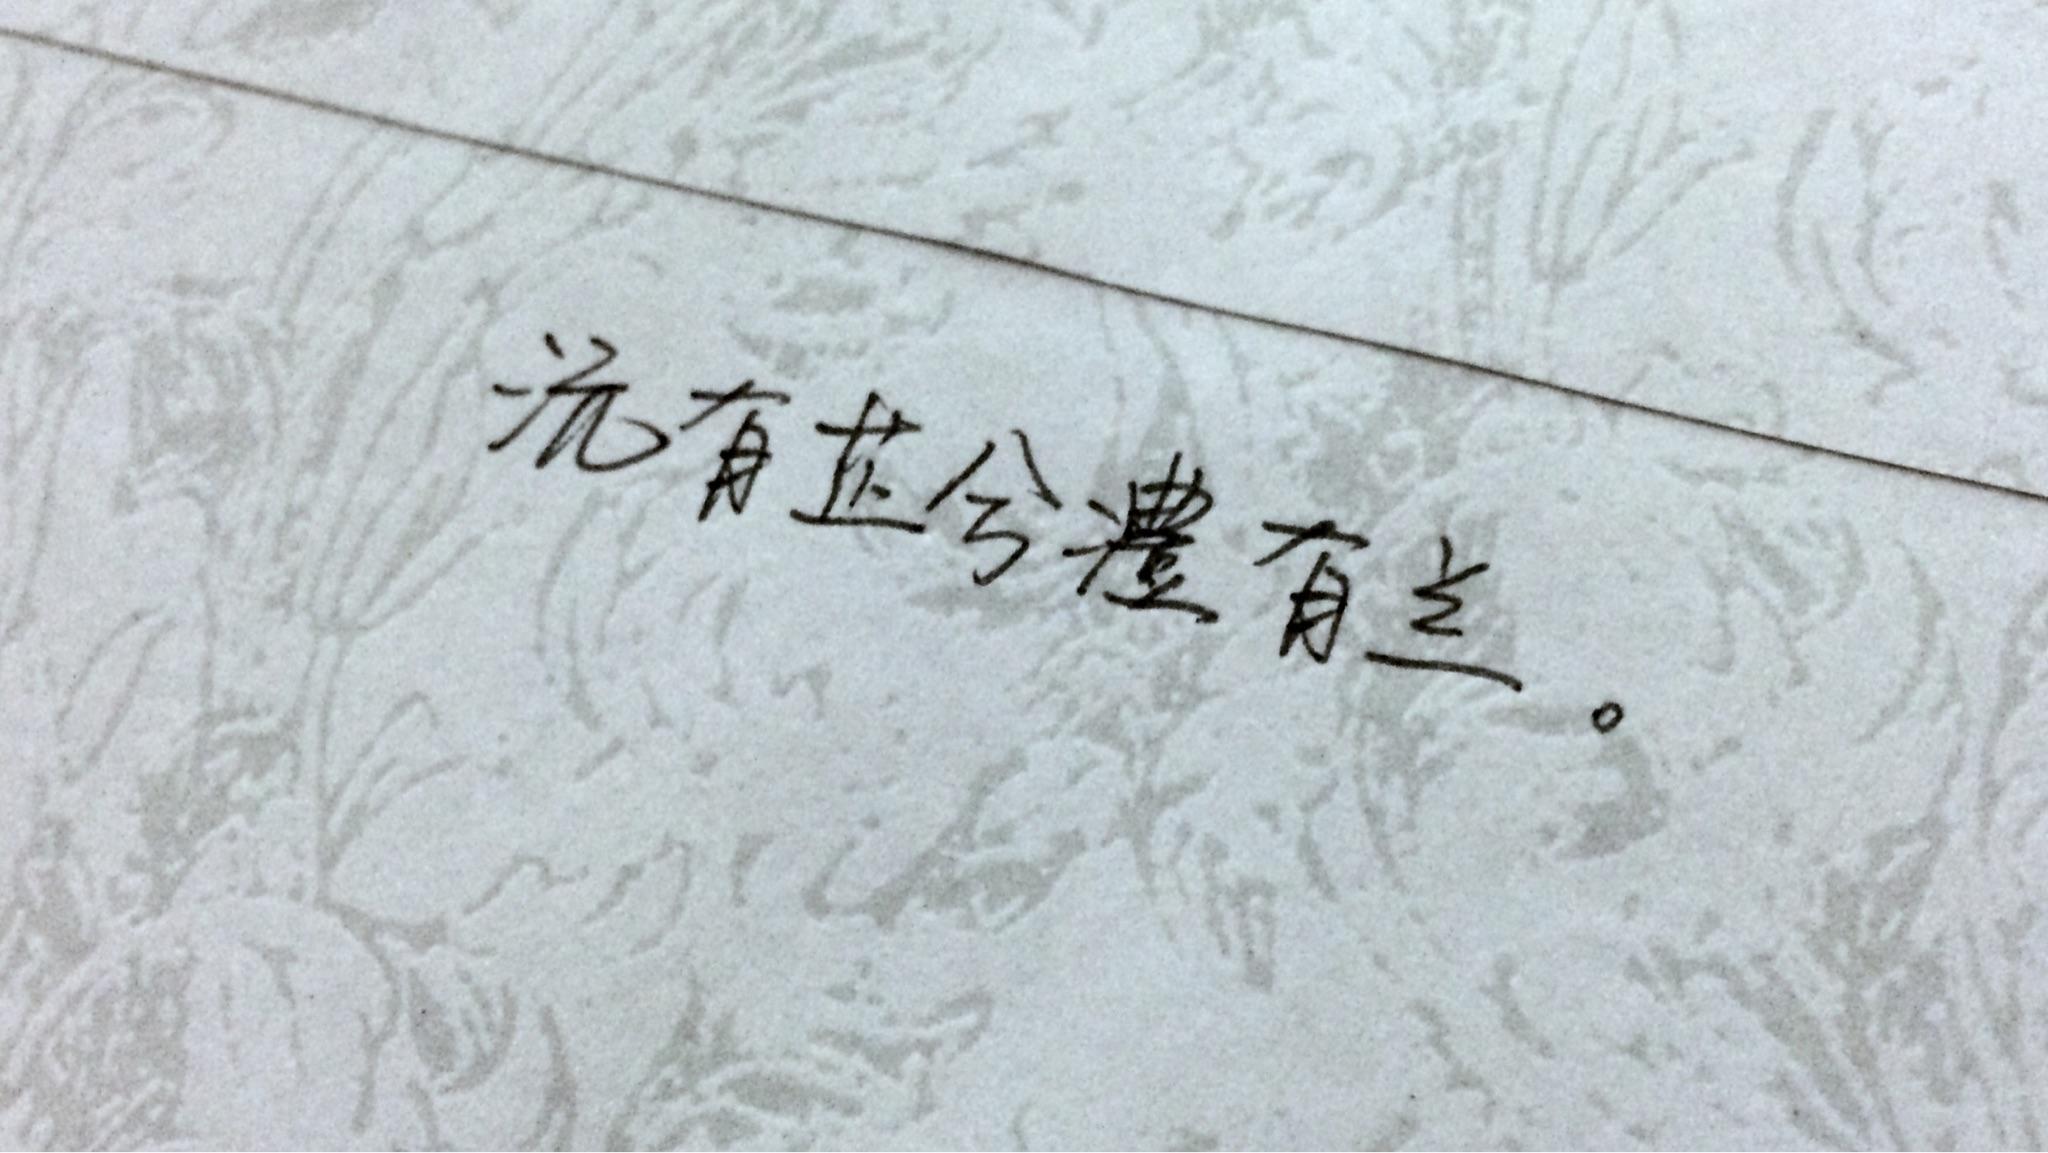 沅有芷兮澧有兰。